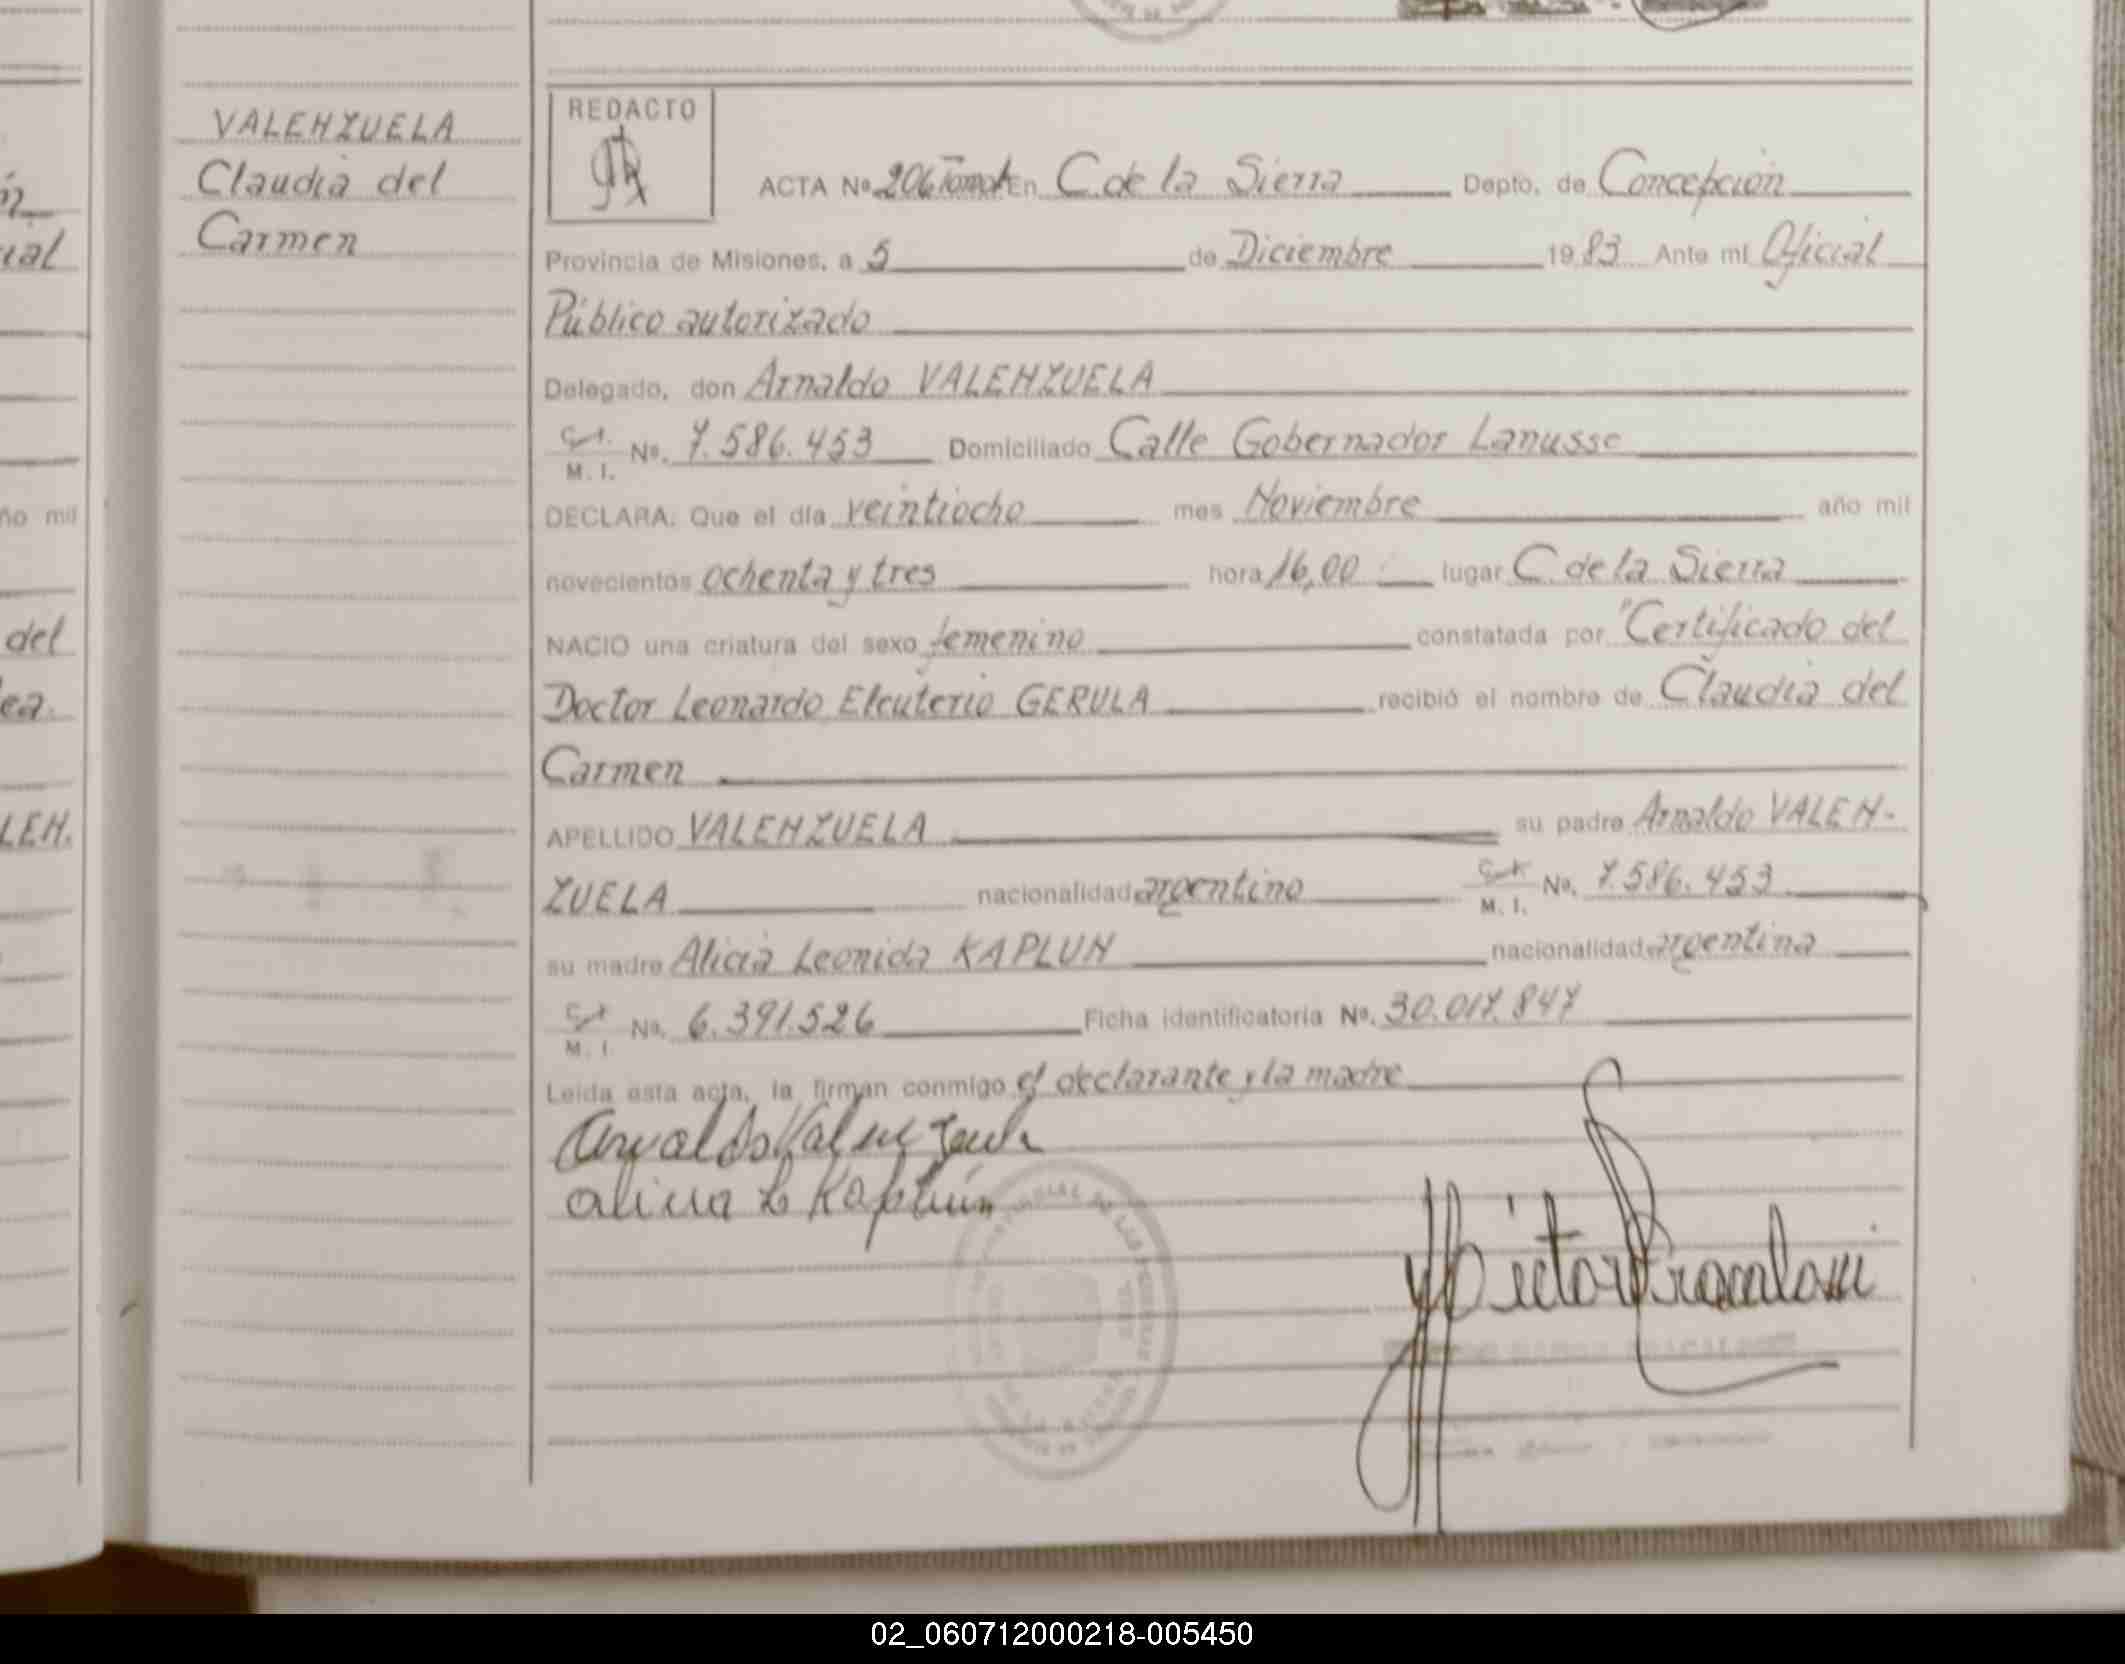 VALENZUELA
Claudia del
Carmen
REDACTO
ACTA Nº 206 Tomo I En C. de la Sierra Depto. de Concepción
Provincia de Misiones, a 5 de Diciembre 1983 Ante mí Oficial
Público autorizado
Delegado, don Arnaldo VALENZUELA
C.I.
M. I. Nº. 7.586.453 Domiciliado Calle Gobernador Lanusse
DECLARA: Que el día veintiocho mes Noviembre año mil
novecientos ochenta y tres hora 16,00 lugar C. de la Sierra
NACIO una criatura del sexo femenino constatada por "Certificado del
Doctor Leonardo Eleuterio GERULA recibió el nombre de Claudia del
Carmen
APELLIDO VALENZUELA su padre Arnaldo VALEN-
ZUELA nacionalidad argentino C.I. M. I. Nº. 7.586.453
su madre Alicia Leonida KAPLUN nacionalidad argentina
C.I.
M. I. Nº. 6.391.526 Ficha identificatoria Nº. 30.017.847
Leída esta acta, la firman conmigo el declarante y la madre
Arnaldo Valenzuela
Alicia L Kaplun
02_060712000218-005450